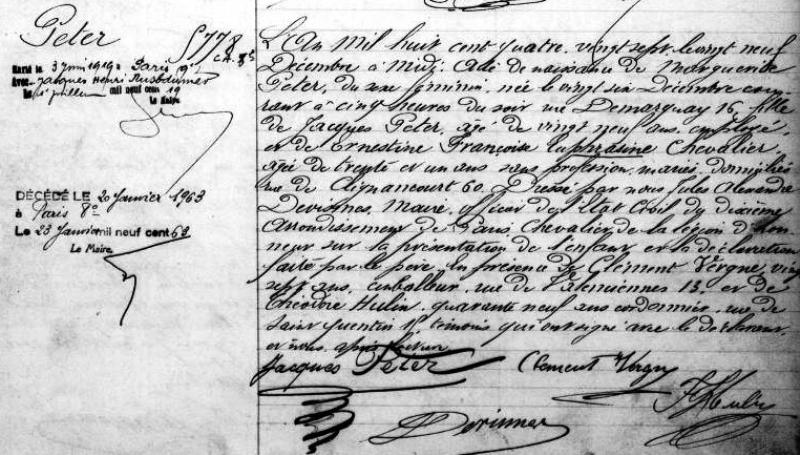 Peter
Marié le 3 mai 1919 à Paris
Avec Jacques Henri
Le juillet mil neuf cent 19
Le Maire
DÉCÉDÉ LE 20 Janvier 1963
à Paris 8e
Le 23 Janvier mil neuf cent 63
Le Maire
L'An mil huit cent quatre-vingt sept, le vingt neuf
Décembre à Midi. Acte de naissance de Marguerite
Peter, du sexe féminin, née le vingt six Décembre cou-
rant à cinq heures du soir rue Demarquay 16, fille
de Jacques Peter, âgé de vingt neuf ans, employé,
et de Ernestine Françoise Euphrasine Chevalier,
âgée de trente et un ans sans profession, mariés, domiciliés
rue de 60. Dressé par nous Jules Alexandre
Devisnes, Maire, Officier de l'Etat Civil du dixième
Arrondissement de Paris, Chevalier de la légion d'hon-
neur sur la présentation de l'enfant et la déclaration
faite par le père, En présence de Clément Vergne, vingt
sept ans, emballeur, rue de Valenciennes 13, et de
Théodore Hulin, quarante neuf ans, cordonnier, rue de
Saint Quentin témoins qui ont signé avec le déclarant
et nous après lecture
Jacques Peter Clement Vergne
Hulin
Devisnes